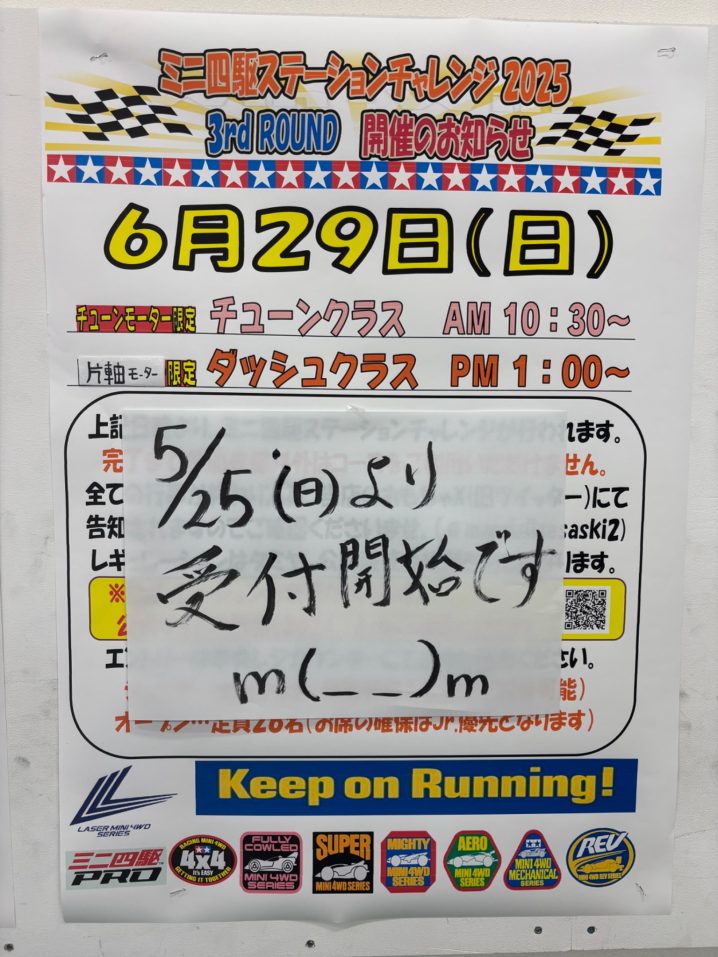 ミニ四駆ステーションチャレンジ 2025
3rd ROUND 開催のお知らせ
6月29日(日)
チューンモーター限定 チューンクラス AM 10:30~
片軸モーター 限定 ダッシュクラス PM 1:00~
上記
れます。
完
せん。
全て
ー)にて
告知
saski2)
レギ
ります。
5/25(日)より
受付開始です
m(_ _)m
※
エン
さい。
能)
オープン…定員28名(お席の確保はJr.優先となります)
Keep on Running!
LASER MINI 4WD SERIES
ミニ四駆 PRO
RACING MINI 4WD 4x4 It's EASY GETTING IT TOGETHER
FULLY COWLED MINI 4WD SERIES
SUPER MINI 4WD SERIES
MIGHTY MINI 4WD SERIES
AERO MINI 4WD SERIES
MINI 4WD MECHANICAL SERIES
REV MINI 4WD REV SERIES